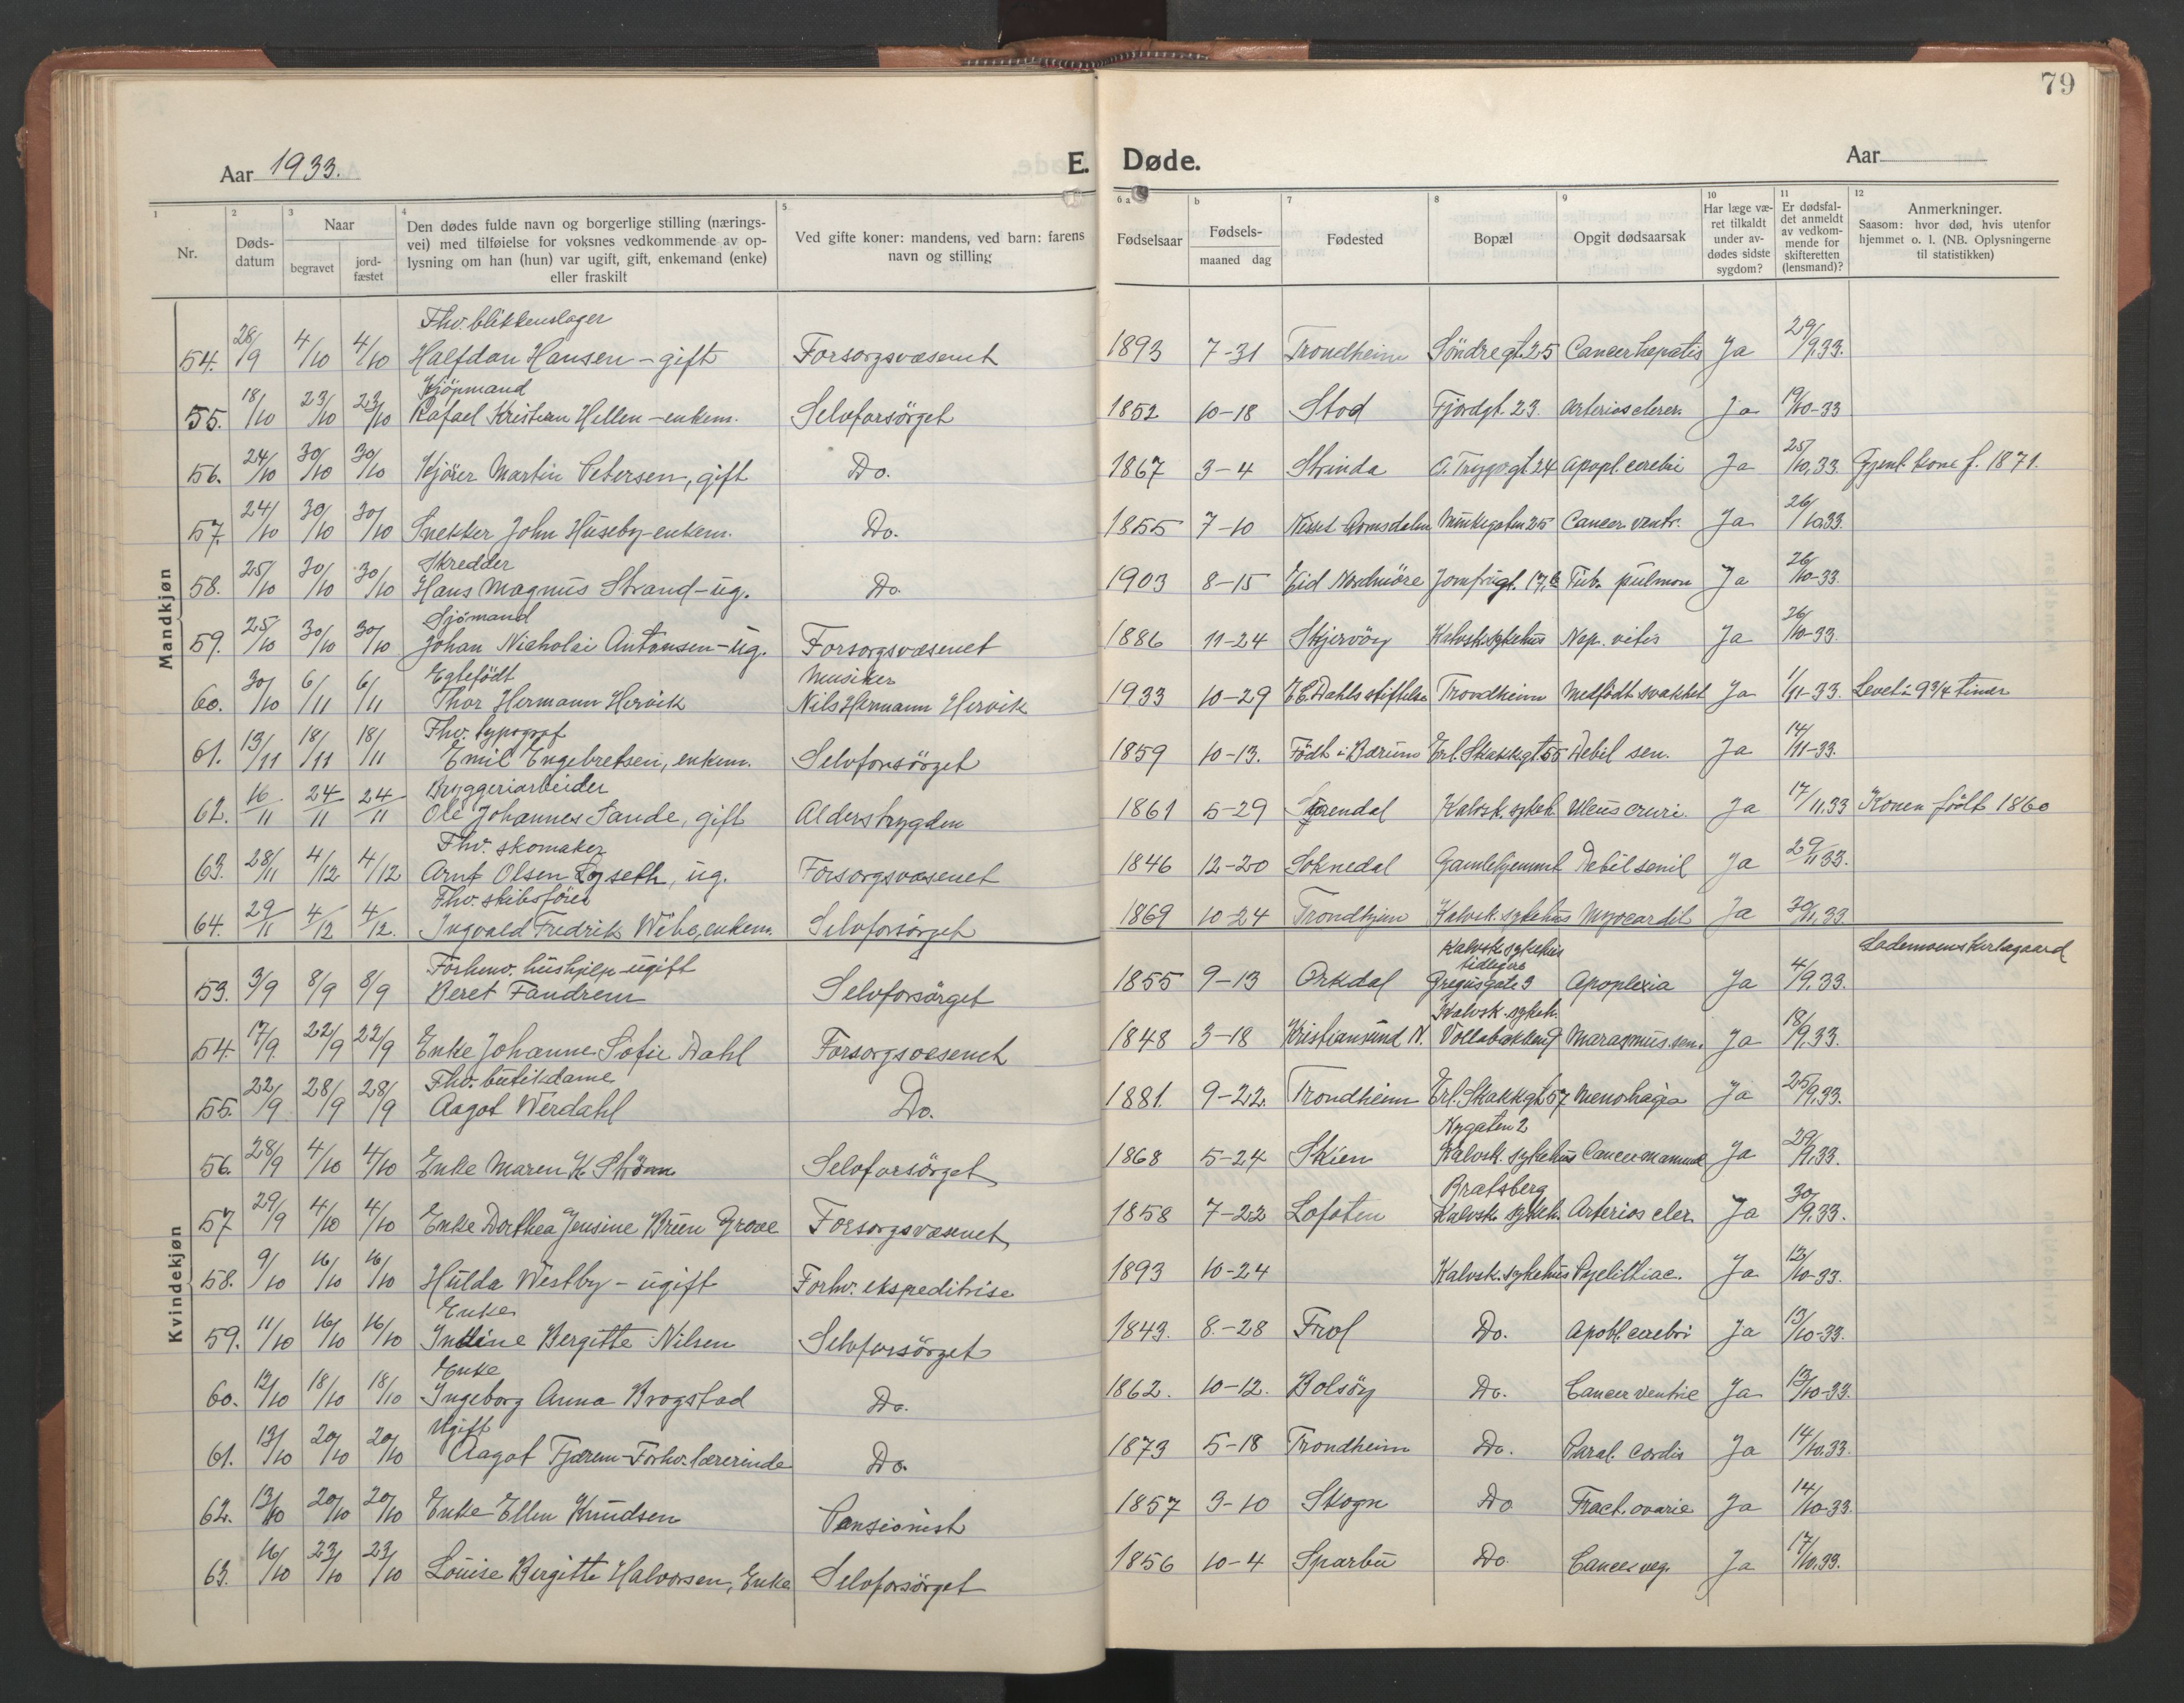 79
Aar 1933.
E. Døde.
Aar
1 2 3 4 5 6 a b 7 8 9 10 11 12
Nr.
Døds-
datum
Naar
begravet
jord-
fæstet
Den dødes fulde navn og borgerlige stilling (nærings-
vei) med tilføielse for voksnes vedkommende av op-
lysning om han (hun) var ugift, gift, enkemand (enke)
eller fraskilt
Ved gifte koner: mandens, ved barn: farens
navn og stilling
Fødselsaar
Fødsels-
maaned dag
Fødested
Bopæl
Opgit dødsaarsak
Har læge væ-
ret tilkaldt
under av-
dødes sidste
sygdom?
Er dødsfal-
det anmeldt
av vedkom-
mende for
skifteretten
(lensmand)?
Anmerkninger.
Saasom: hvor død, hvis utenfor
hjemmet o. l. (NB. Oplysningerne
til statistikken)
Mandkjøn
Fhv. blikkenslager
54. 28/9 4/10 4/10 Halfdan Hansen - gift Forsorgsvæsenet 1893 7-31 Trondheim Söndregt. 25 Cancer hepatis Ja 29/9.33.
Kjöpmand
55. 18/10 23/10 23/10 Rafael Kristian Hellen - enkem. Selvforsörget 1852 10-18 Stod Fjordgt. 23. Ja 19/10-33
56. 24/10 30/10 30/10 Kjörer Martin Petersen, gift Do. 1867 3-4 Strinda O. Trygv.gt. 24 Apopl. cerebri Ja 25/10.33 Gjenl. kone f. 1871.
57. 24/10 30/10 30/10 Snekker John Huseby - enkem. Do. 1855 7-10 Romsdalen Munkegaten 25 Cancer ventr. Ja 26/10.33.
Skredder
58. 25/10 30/10 30/10 Hans Magnus Strand - ug. Do 1903 8-15 Eid Nordmöre Jomfrugt. 17,b Tub. pulmon Ja 26/10-33.
Sjömand
59. 25/10 30/10 30/10 Johan Nicholai Antonsen - ug. Forsorgsvæsenet 1886 11-24 Skjervöy Kalvsk. sykehus Ja 26/10-33.
Egtefödt Musiker
60. 30/10 6/11 6/11 Thor Hermann Hervik Nils Hermann Hervik 1933 10-29 E.C. Dahls stiftelse Trondheim Medfödt svakhet Ja 1/11-33. Levet i 9 3/4 timer
Fhv. typograf
61. 13/11 18/11 18/11 Emil Engebretsen, enkem. Selvforsörget 1859 10-13. Födt i Bærum Erl. Skakkgt. 55 Debil sen. Ja 14/11-33.
Bryggeriarbeider
62. 16/11 24/11 24/11 Ole Johannes Sande, gift Alderstrygden 1861 5-29 Kalvsk. sykeh. Ulcus cruri. Ja 17/11.33 Konen födt 1860
Fhv. skomaker
63. 28/11 4/12 4/12 Arnt Olsen Logseth, ug. Forsorgsvæsenet 1846 12-20 Soknedal Gamlehjemmet Debil senil Ja 29/11 33.
Fhv. skibsförer
64. 29/11 4/12 4/12. Ingvald Fredrik Wibe, enkem. Selvforsörget 1869 10-24 Trondhjem Kalvsk. sykehus Myocardit Ja 30/11.33.
Kvindekjøn
Forhenv. hushjelp - ugift Kalvsk. sykehus tidligere Lademoens kirkegaard
53. 3/9 8/9 8/9 Beret Fandrem Selvforsörget 1855 9-13 Orkdal Gregusgate 3 Apoplexia Ja 4/9.33.
Kalvsk. sykeh.
54. 17/9. 22/9 22/9 Enke Johanne Sofie Dahl Forsorgsvæsenet 1848 3-18 Kristiansund N. Vollabakken 9 Marasmus. sen. Ja 18/9.33.
Fhv. butikdame
55. 22/9 28/9 28/9 Aagot Werdahl Do. 1881 9-22. Trondheim Erl. Skakkgt. 57 Menorhagia Ja 25/9.33.
Nygaten 2
56. 28/9 4/10 4/10 Enke Maren K. Ström Selvforsörget 1868 5-24 Skien Kalvsk. sykehus Cancer mammae Ja 29/9.33.
Bratsberg
57 29/9 4/10 4/10 Enke Dorthea Jensine Brun Grove Forsorgsvæsenet 1858 7-22 Lofoten Kalvsk. sykeh. Arterioscler. Ja 30/9.33.
58. 9/10 16/10 16/10 Hulda Westby - ugift Forhv. ekspeditrise 1893 10-24 Kalvsk. sykehus Ja 12/10-33.
Enke
59. 11/10 16/10 16/10 Indine Bergitte Nilsen Selvforsörget 1843. 8.-28 Frol Do. Apopl. cerebri Ja 13/10-33.
Enke
60. 12/10 18/10 18/10 Ingeborg Anna Brogstad Do. 1862. 10-12. Bolsöy Do. Cancer ventric Ja 13/10-33.
Ugift
61. 13/10 20/10 20/10 Aagot Tjærem - Forhv. lærerinde Do. 1873 5-18 Trondheim Do. Paral. cordis Ja 14/10.33.
62. 13/10 20/10 20/10 Enke Ellen Knudsen Pensionist 1857 3-10 Skogn Do Fract. ovarie Ja 14/10-33.
63. 16/10 23/10 23/10 Louise Birgitte Halvorsen, Enke Selvforsörget 1856 10-4 Sparbu Do. Cancer Ja 17/10.33.